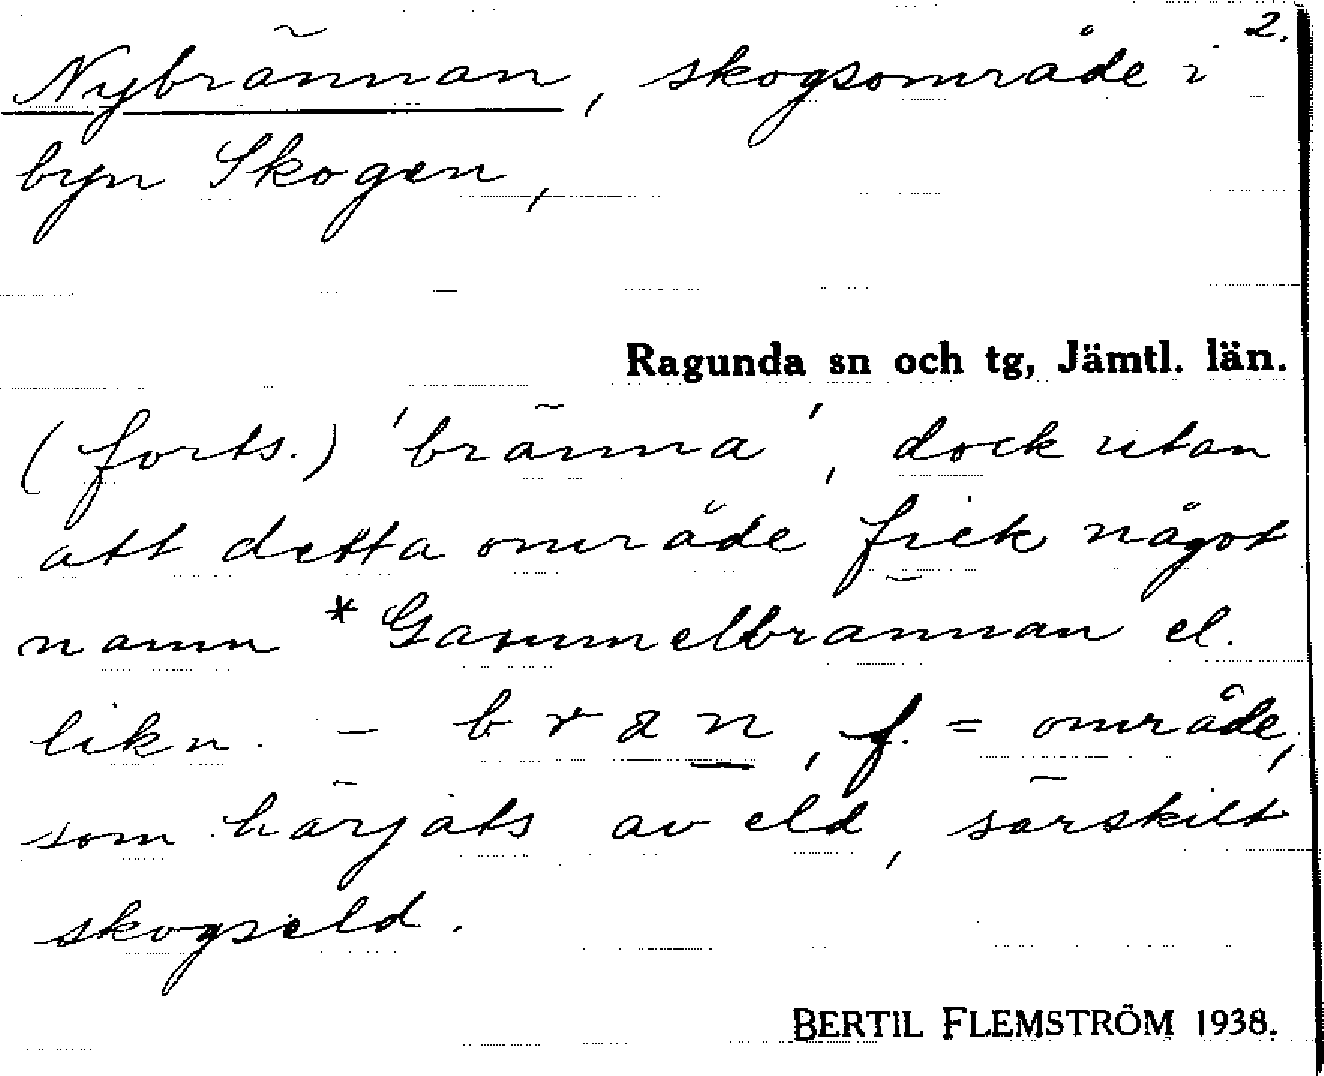 2.
Nybrännan, skogsområde i
byn Skogen,
Ragunda sn och tg, Jämtl. län.
(forts.) 'bränna', dock utan
att detta område fick något
namn *Gammelbrännan el.
likn. - bran, f. = område,
som härjats av eld, särskilt
skogseld.
BERTIL FLEMSTRÖM 1938.